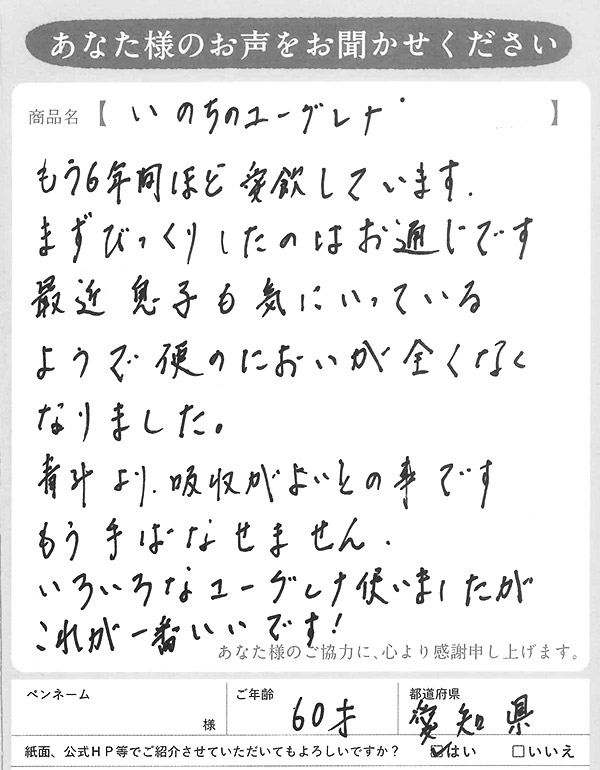 あなた様のお声をお聞かせください
商品名【いのちのユーグレナ】
もう6年間ほど愛飲しています.
まずびっくりしたのはお通じです
最近息子も気にいっている
ようで便のにおいが全くなく
なりました。
青汁より、吸収がよいとの事です
もう手ばなせません.
いろいろなユーグレナ使いましたが
これが一番いいです!
あなた様のご協力に、心より感謝申し上げます。
ペンネーム 様 ご年齢 60才 都道府県 愛知県
紙面、公式HP等でご紹介させていただいてもよろしいですか? ☑はい □いいえ